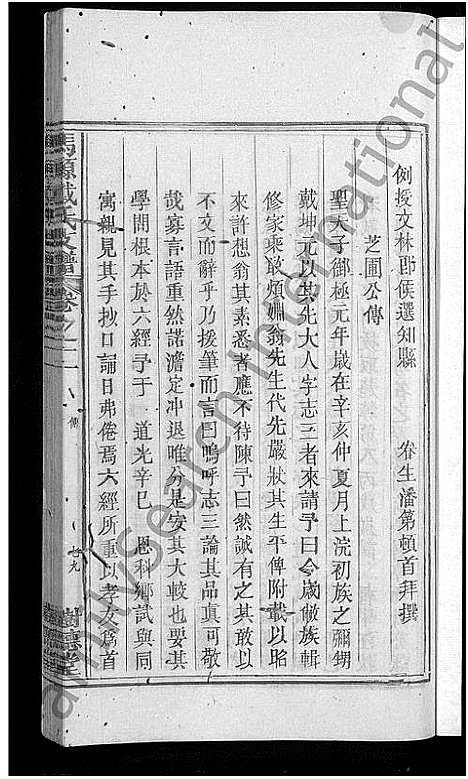 例授文林郎侯選知縣 眷生潘第頓首拜撰
芝圃公傳
聖天子御極元年歲在辛亥仲夏月上浣初族之彌甥
戴坤元以其先大人字志三者來請予曰今歲敝族輯
修家乘敢煩姻翁先生代先嚴狀其生平俾附載以昭
來許想翁其素悉者應不待陳予曰然誠有之其敢以
不文而辭乎乃援筆而言曰嗚呼志三論其品真可敬
哉寡言語重然諾澹定冲退唯分是安其大較也要其
學問根本於六經予于 道光辛巳 恩科鄉試與同
寓親見其手抄口誦日弗倦焉六經所重以孝友爲首
馬源戴氏支譜 卷之二 傳 七九 樹德堂
amilySearch International